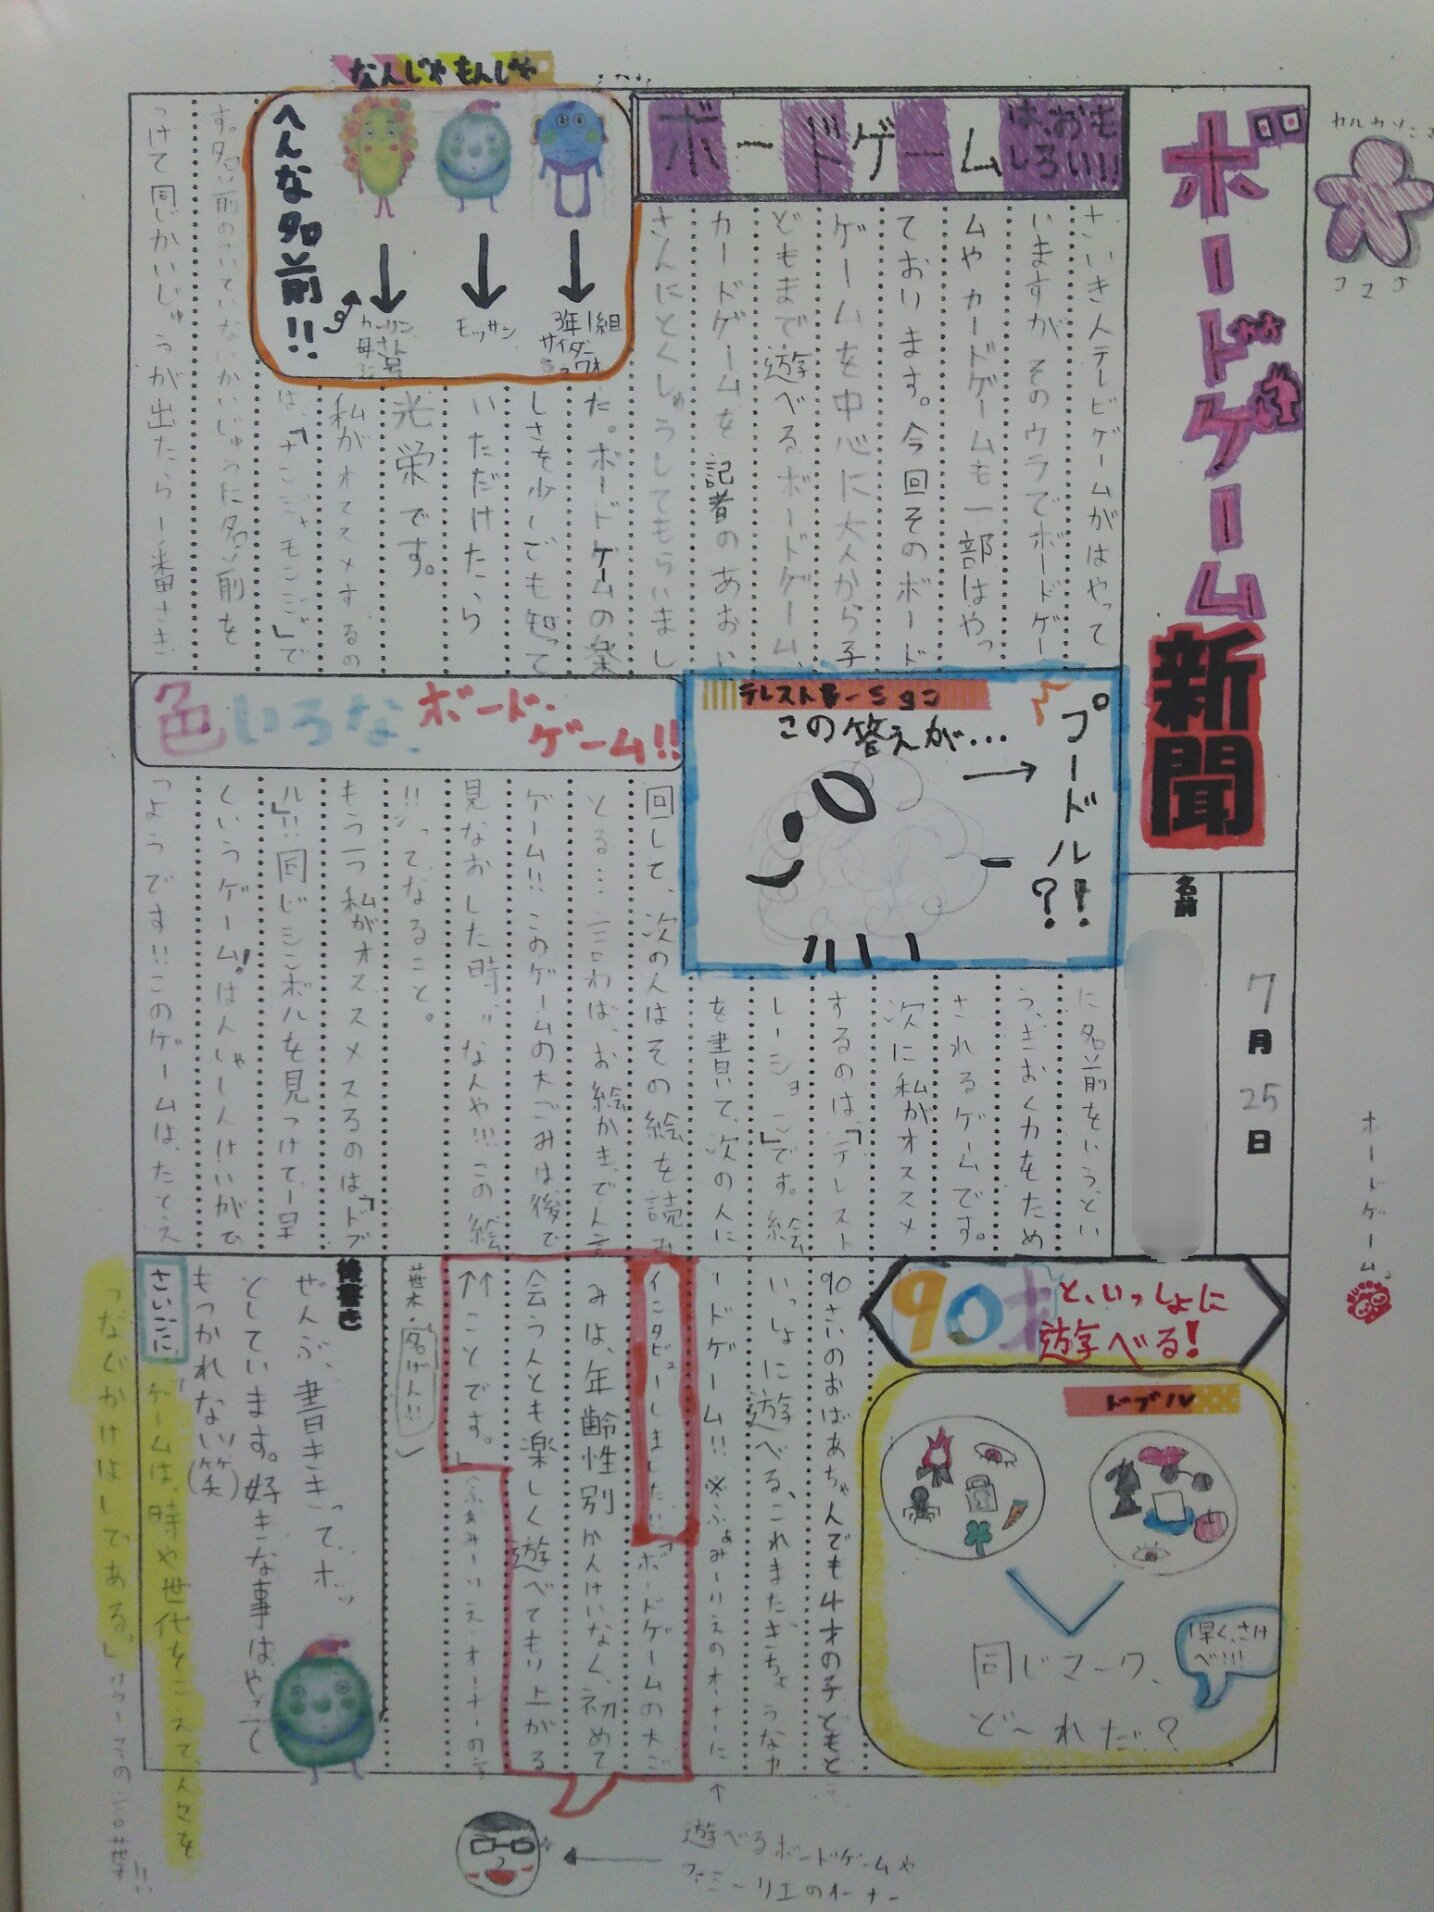 ボードゲーム
新聞
カルカソンヌ
コマ
名前
7月25日
ボードゲーム
ボードゲームは、おもしろい!!
さいきんテレビゲームがはやって
いますが、そのウラでボードゲー
ムやカードゲームも一部はやっ
ております。今回そのボード
ゲームを中心に大人から子
どもまで遊べるボードゲーム、
カードゲームを記者のあおい
さんにとくしゅうしてもらいまし
た。ボードゲームの楽
しさを少しでも知って
いただけたら
光栄です。
私がオススメするの
は、「ナンジャモンジャ」で
す。名前のついていないかいじゅうに名前を
つけて同じかいじゅうが出たら1番さき
なんじゃもんじゃ
へんな名前!!
3年1組
サイダー
モッサン
カーリン
母さん
に名前をいうとい
う、きおく力をため
されるゲームです。
次に私がオススメ
するのは、「テレスト
レーション」です。絵
を書いて、次の人に
回して、次の人はその絵を読み
とる…言わば、お絵かき、でん言
ゲーム!!このゲームの大ごみは後で
見なおした時、“なんや!!!この絵
!!”ってなること。
もう一つ私がオススメスるのは「ドブ
ル」!!同じシンボルを見つけて、1早
くいうゲーム!はんしゃしんけいがひ
つようです!!このゲームは、たとえ
テレストレーション
この答えが…
→プードル!!?
色いろな、ボード・ゲーム!!
90才と、いっしょに遊べる!
90さいのおばあちゃんでも4才の子どもと
いっしょに遊べる、これまた、きちょうなボ
ードゲーム!!※ふぁみーりえのオーナーに
インタビューしました!!
「ボードゲームの大ご
みは、年齢性別かんけいなく、初めて
会う人とも楽しく遊べてもり上がる
ことです。」(ふぁみーりえ・オーナーの言
葉・名げん!!)
ドブル
同じマーク、
ど〜れだ?
早く、さけべ!!!
後書き
ぜんぶ、書ききって、ホッ
としています。好きな事はやって
もつかれない(笑)
さいごに
「ゲームは、時や世代をこえて、人々を
つなぐかけはしである。」
の言葉!!
遊べるボードゲームや
ファミーリエのオーナー